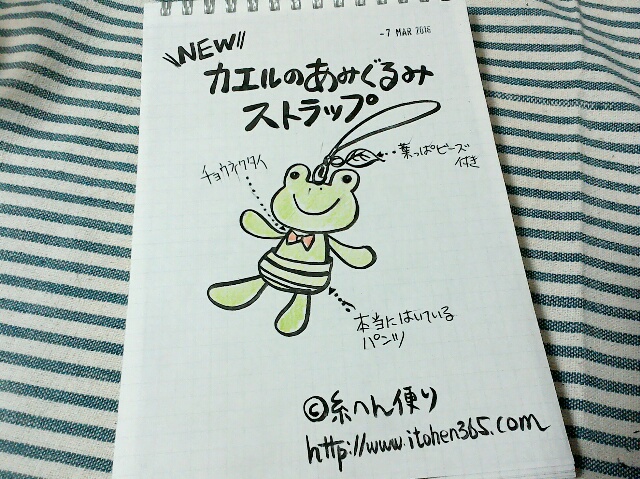 -7 MAR 2016
NEW
カエルのあみぐるみ
ストラップ
葉っぱビーズ
付き
チョウネクタイ
本当にはいている
パンツ
©糸へん便り
http://www.itohen365.com